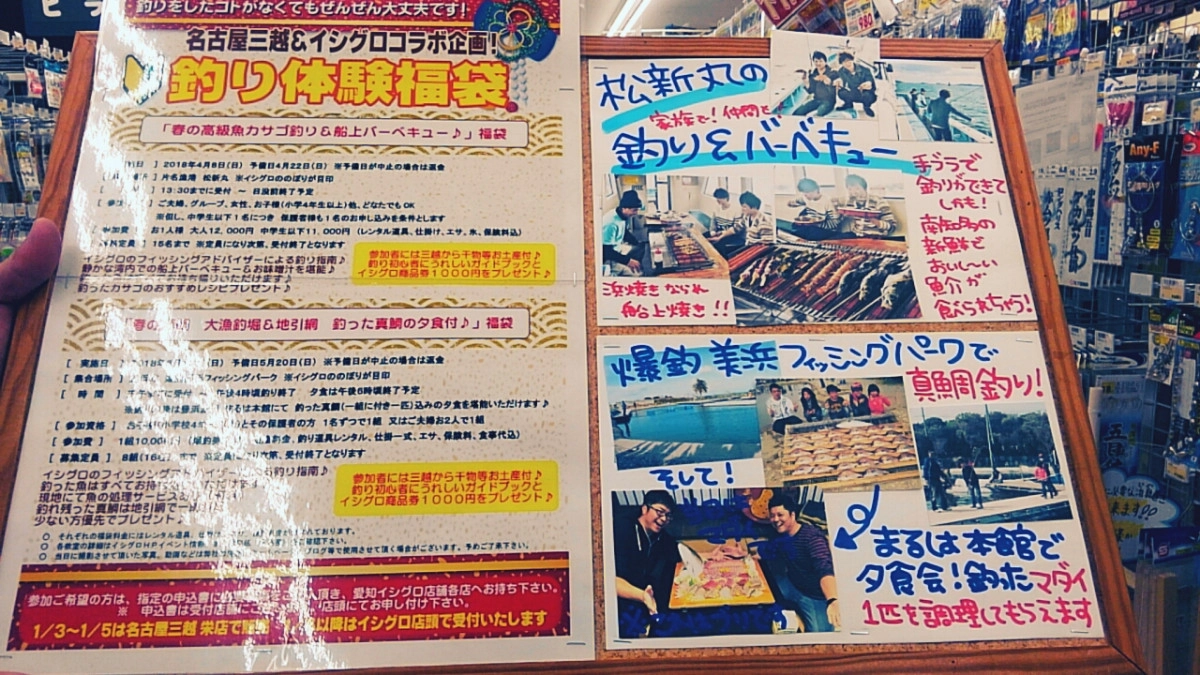 釣りをしたコトがなくてもぜんぜん大丈夫です!
名古屋三越&イシグロコラボ企画!
釣り体験福袋
「春の高級魚カサゴ釣り&船上バーベキュー♪」福袋
日 ] 2018年4月8日(日) 予備日4月22日(日) ※予備日が中止の場合は返金
] 片名漁港 松新丸 ※イシグロののぼりが目印
] 13:30までに受付 ~ 日没前終了予定
ご夫婦、グループ、女性、お子様(小学4年生以上)他、どなたでもOK
※但し、中学生以下1名につき 保護者様も1名のお申し込みを条件とします
参加費 ] お1人様 大人12,000円 中学生以下11,000円 (レンタル道具、仕掛け、エサ、氷、保険料込)
定員 ] 15名まで ※定員になり次第、受付終了となります
イシグロのフィッシングアドバイザーによる釣り指南♪
静かな湾内での船上バーベキュー&お味噌汁を堪能♪
釣ったカサゴのおすすめレシピプレゼント♪
参加者には三越から干物等お土産付♪
釣り初心者にうれしいガイドブックと
イシグロ商品券1000円をプレゼント♪
「春の 大漁釣堀&地引網 釣った真鯛の夕食付♪」福袋
[ 実施日 (日) 予備日5月20日(日) ※予備日が中止の場合は返金
[ 集合場所 ] フィッシングパーク ※イシグロののぼりが目印
[ 時 間 ] 4時頃釣り終了 夕食は午後6時頃終了予定
本館にて 釣った真鯛(一組に付き一匹)込みの夕食を堪能いただけます♪
[ 参加資格 ] とその保護者の方 1名ずつで1組 又はご夫婦お2人で1組
[ 参加費 ] 1組10,000円 釣り道具レンタル、仕掛一式、エサ、保険料、食事代込)
[ 募集定員 ] 8組(16名) 次第、受付終了となります
イシグロのフィッシングアドバイザー 釣り指南♪
釣った魚はすべてお持ち
現地にて魚の処理サービス
釣れ残った真鯛は地引網で一網
少ない方優先でプレゼント♪
参加者には三越から干物等お土産付♪
釣り初心者にうれしいガイドブックと
イシグロ商品券1000円をプレゼント♪
○ それぞれの福袋料金にはレンタル道具、 おります。
○ 各教室の詳細はイシグロHPイベント情報 ください。
○ 当日に撮影させて頂いた写真、動画などは弊社 ブログ等で使用させて頂く場合がございます。予めご了承下さい。
参加ご希望の方は、指定の申込書に 入頂き、愛知イシグロ店舗各店へお持ち下さい。
※ 申込書は受付店舗に 店頭にてお申し付け下さい。
1/3~1/5は名古屋三越 栄店で 以降はイシグロ店頭で受付いたします
松新丸の
家族で!仲間と
釣り&バーベキュー
手ブラで
釣りができて
しかも!
南知多の
新鮮で
おいし~い
魚介が
食べられちゃう!
浜焼きならぬ
船上焼き!!
爆釣 美浜フィッシングパークで
真鯛釣り!
そして!
まるは本館で
夕食会!釣ったマダイ
1匹を調理してもらえます
Any-F
980